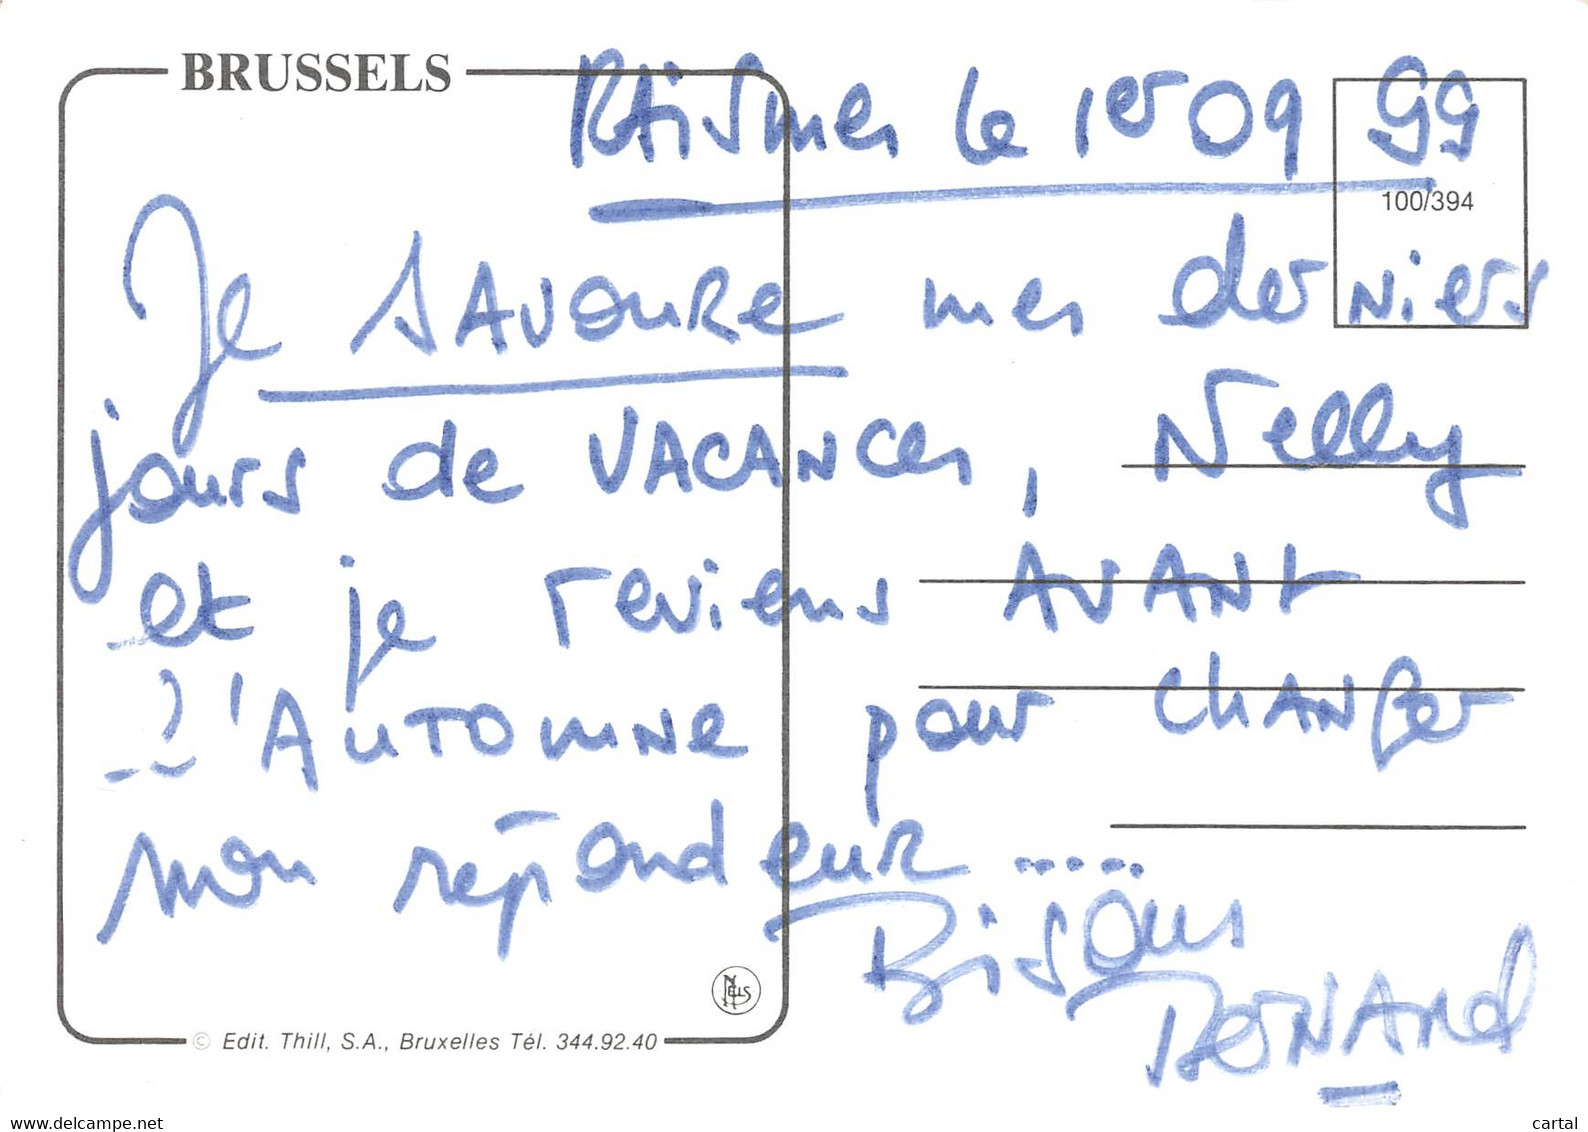 BRUSSELS
Raismes le 1er 09 99
100/394
Je SAVOURE mes derniers
jours de VACANces, Nelly
et je reviens AVANT
l'AUTOMNE pour CHANger
mon répondeur .....
Bisous
BerNArd
NELS
© Edit. Thill, S.A., Bruxelles Tél. 344.92.40
www.delcampe.net
cartal